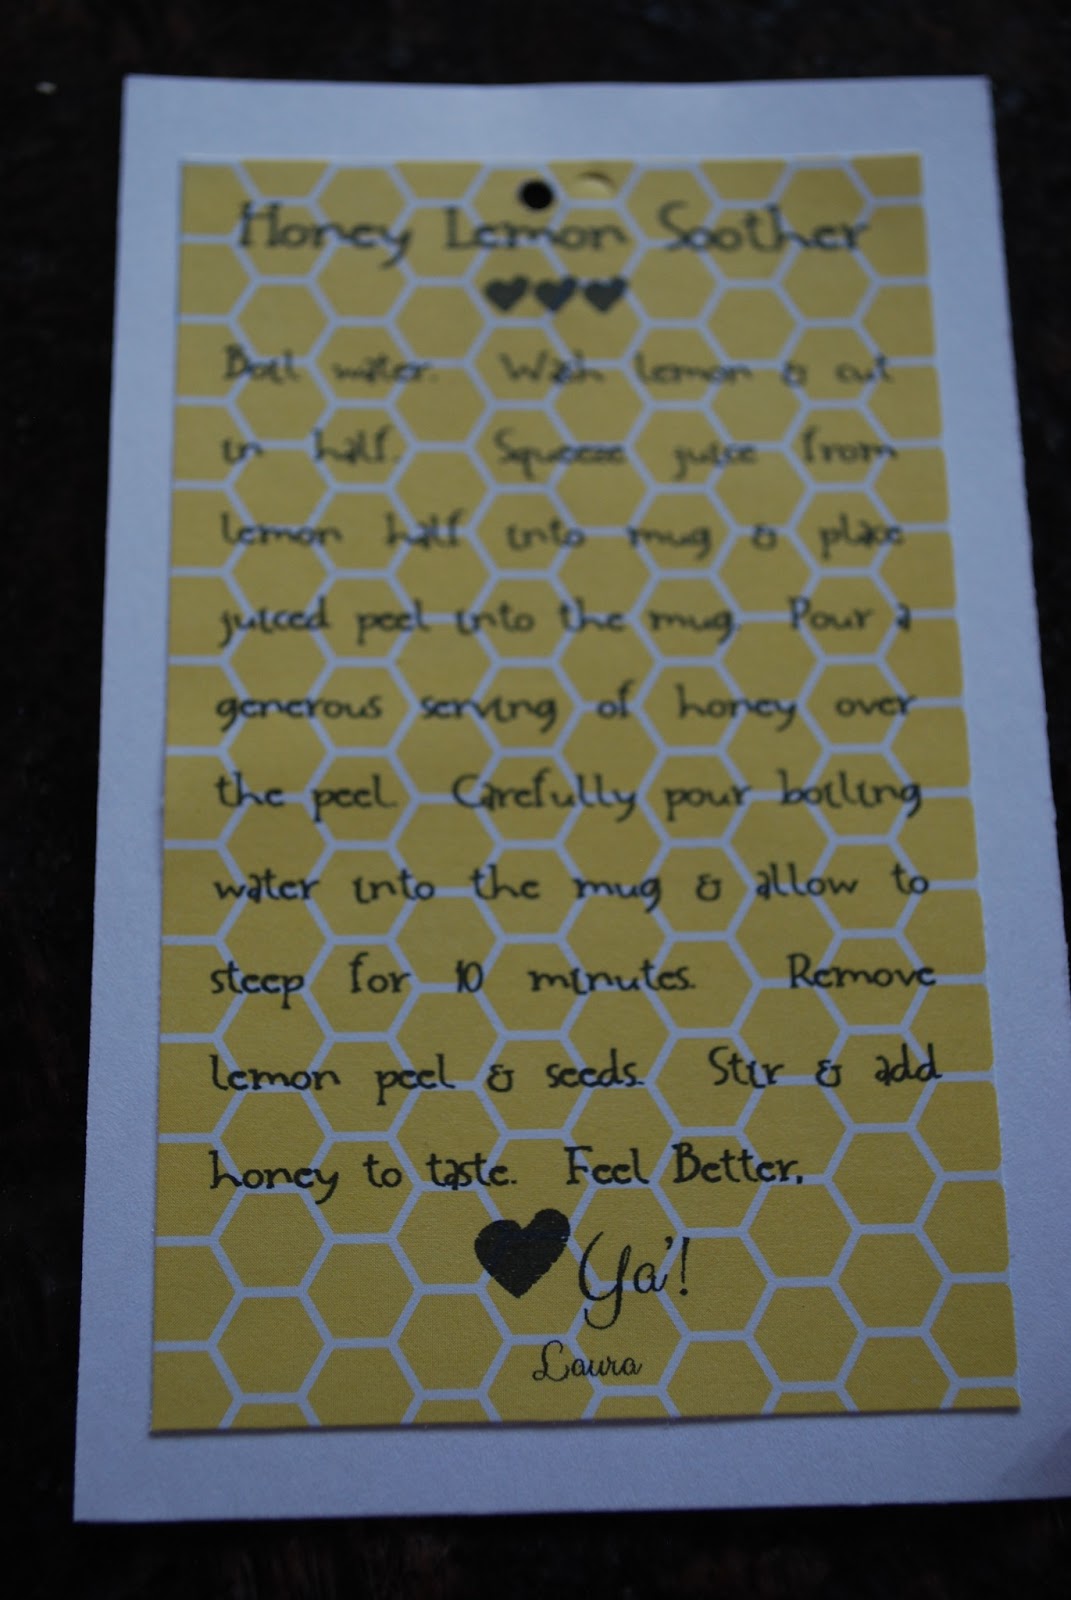 Honey Lemon Soother
♥♥♥
Boil water. Wash lemon & cut
in half. Squeeze juice from
lemon half into mug & place
juiced peel into the mug. Pour a
generous serving of honey over
the peel. Carefully pour boiling
water into the mug & allow to
steep for 10 minutes. Remove
lemon peel & seeds. Stir & add
honey to taste. Feel Better,
♥ Ya'!
Laura